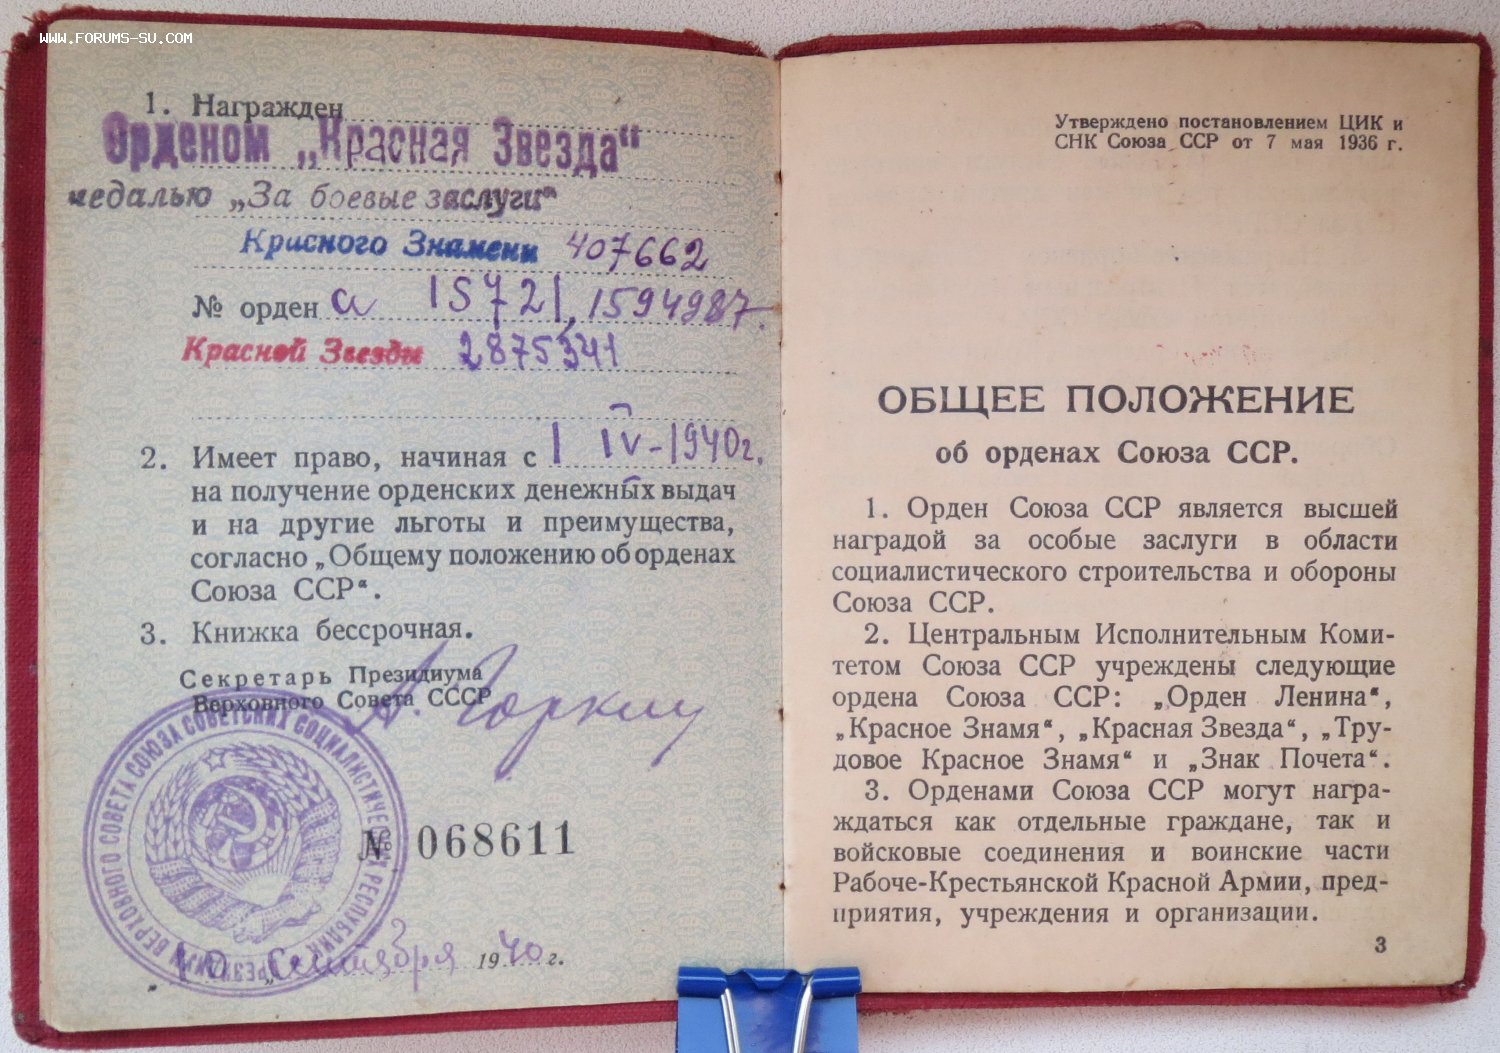 www.forums-su.com
1. Награжден
Орденом „Красная Звезда“
медалью „За боевые заслуги“
Красного Знамени 407662
№ орден а 15721, 1594987.
Красной Звезды 2875341
2. Имеет право, начиная с 1 IV-1940г.
на получение орденских денежных выдач
и на другие льготы и преимущества,
согласно „Общему положению об орденах
Союза ССР“.
3. Книжка бессрочная.
Секретарь Президиума
Верховного Совета СССР
А. Горкин
ПРЕЗИДИУМ ВЕРХОВНОГО СОВЕТА СОЮЗА СОВЕТСКИХ СОЦИАЛИСТИЧЕСКИХ РЕСПУБЛИК
№ 068611
„10“ Сентября 1940 г.
Утверждено постановлением ЦИК и
СНК Союза ССР от 7 мая 1936 г.
ОБЩЕЕ ПОЛОЖЕНИЕ
об орденах Союза ССР.
1. Орден Союза ССР является высшей
наградой за особые заслуги в области
социалистического строительства и обороны
Союза ССР.
2. Центральным Исполнительным Коми-
тетом Союза ССР учреждены следующие
ордена Союза ССР: „Орден Ленина“,
„Красное Знамя“, „Красная Звезда“, „Тру-
довое Красное Знамя“ и „Знак Почета“.
3. Орденами Союза ССР могут награ-
ждаться как отдельные граждане, так и
войсковые соединения и воинские части
Рабоче-Крестьянской Красной Армии, пред-
приятия, учреждения и организации.
3